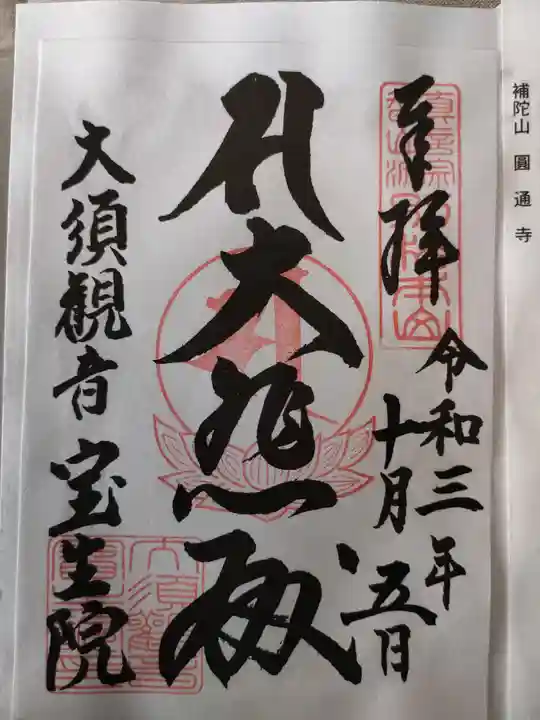 補陀山 圓通寺
奉拝
令和三年
十月五日
大悲殿
大須観音 宝生院